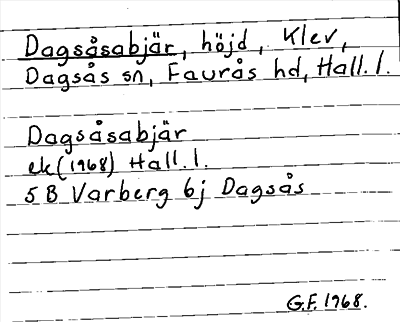 Dagsåsabjär, höjd, Klev,
Dagsås sn, Faurås hd, Hall. l.
Dagsåsabjär
ek (1968) Hall. l.
5 B Varberg 6j Dagsås
G.F. 1968.